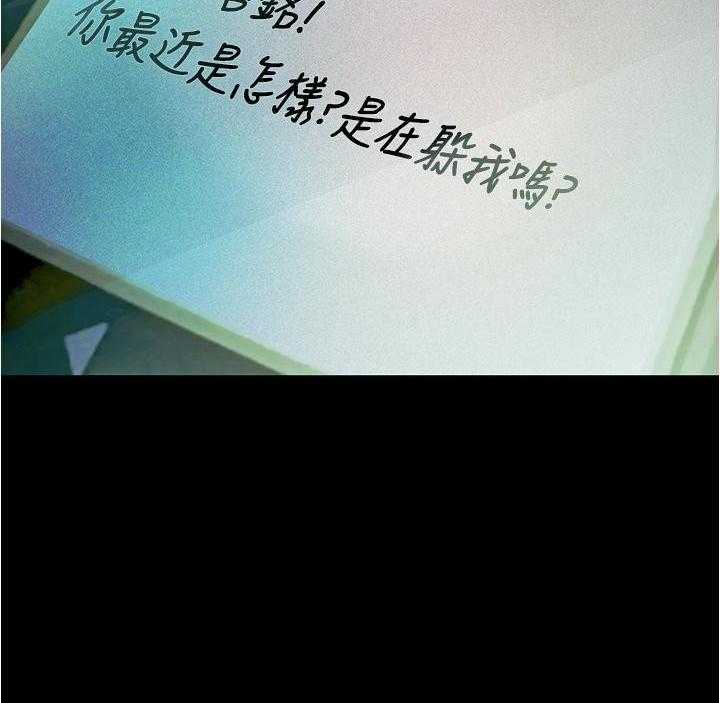 銘!
你最近是怎樣?是在躲我嗎?